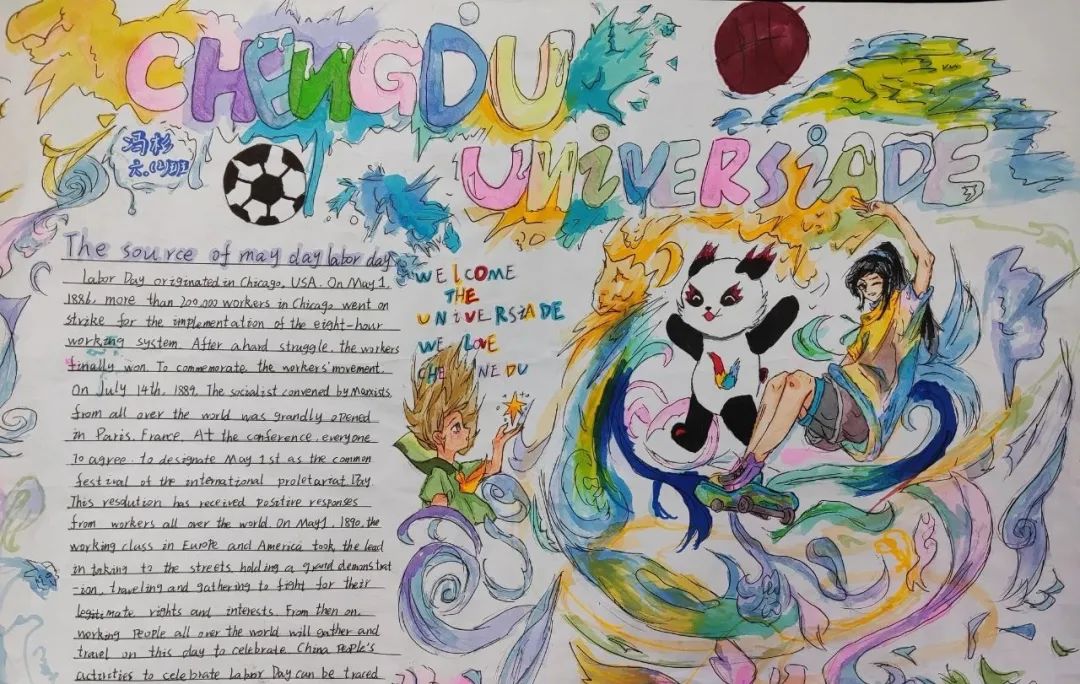 CHENGDU
UNIVERSIADE
冯杉
The source of may day labor day
Labor Day originated in Chicago, USA. On May 1.
1886, more than 200,000 workers in Chicago went on
strike for the implementation of the eight-hour
working system. After a hard struggle, the workers
finally won. To commemorate the workers' movement.
On July 14th, 1889, The socialist convened by Marxists
from all over the world was grandly opened
in Paris, France, At the conference, everyone
To agree, to designate May 1st as the common
festival of the international proletariat Day
This resolution has received positive responses
from workers all over the world. On May 1, 1890, the
working class in Europe and America took the lead
in taking to the streets, holding a grand demonstrat
-ion, traveling and gathering to fight for their
legitimate rights and interests. From then on,
working people all over the world will gather and
travel on this day to celebrate. China People's
activities to celebrate Labor Day can be traced
WELCOME
THE
UNIVERSIADE
WE LOVE